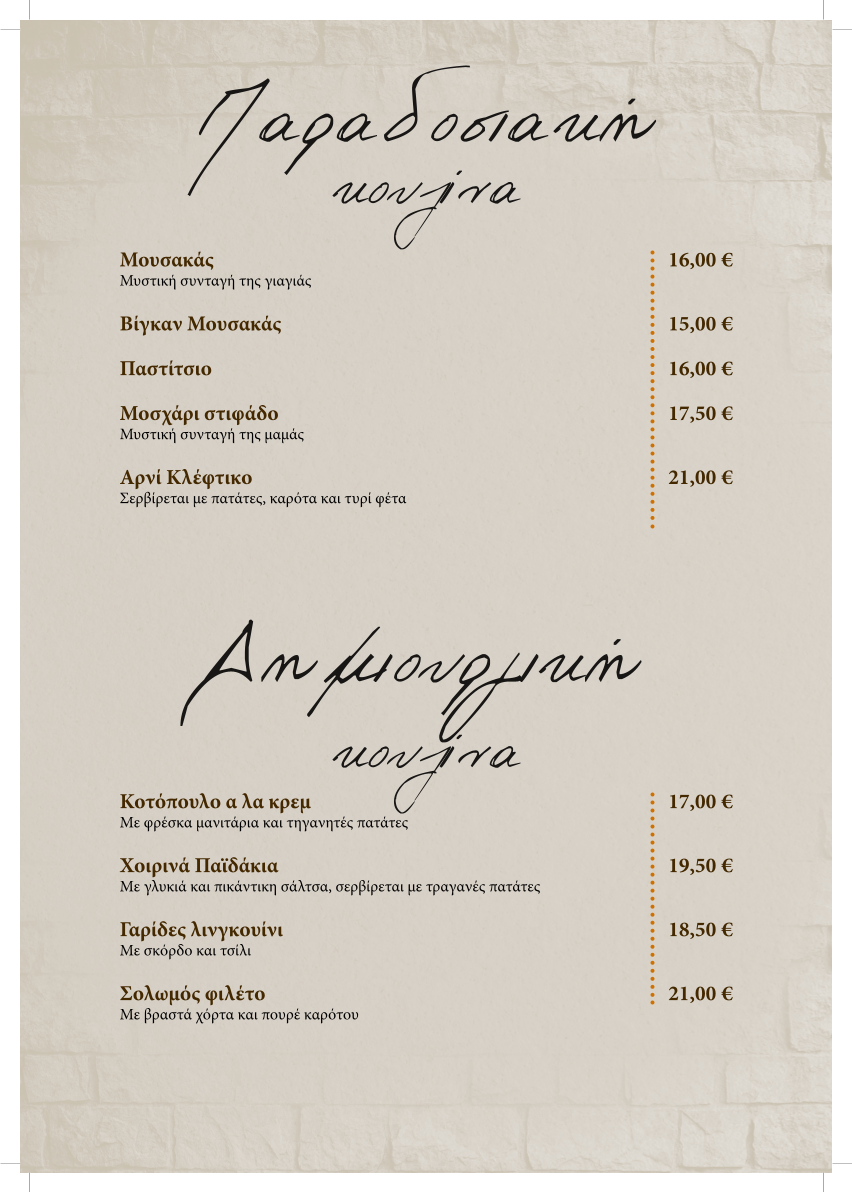 Παραδοσιακή
κουζίνα
Μουσακάς 16,00 €
Μυστική συνταγή της γιαγιάς
Βίγκαν Μουσακάς 15,00 €
Παστίτσιο 16,00 €
Μοσχάρι στιφάδο 17,50 €
Μυστική συνταγή της μαμάς
Αρνί Κλέφτικο 21,00 €
Σερβίρεται με πατάτες, καρότα και τυρί φέτα
Δημιουργική
κουζίνα
Κοτόπουλο α λα κρεμ 17,00 €
Με φρέσκα μανιτάρια και τηγανητές πατάτες
Χοιρινά Παϊδάκια 19,50 €
Με γλυκιά και πικάντικη σάλτσα, σερβίρεται με τραγανές πατάτες
Γαρίδες λινγκουίνι 18,50 €
Με σκόρδο και τσίλι
Σολωμός φιλέτο 21,00 €
Με βραστά χόρτα και πουρέ καρότου